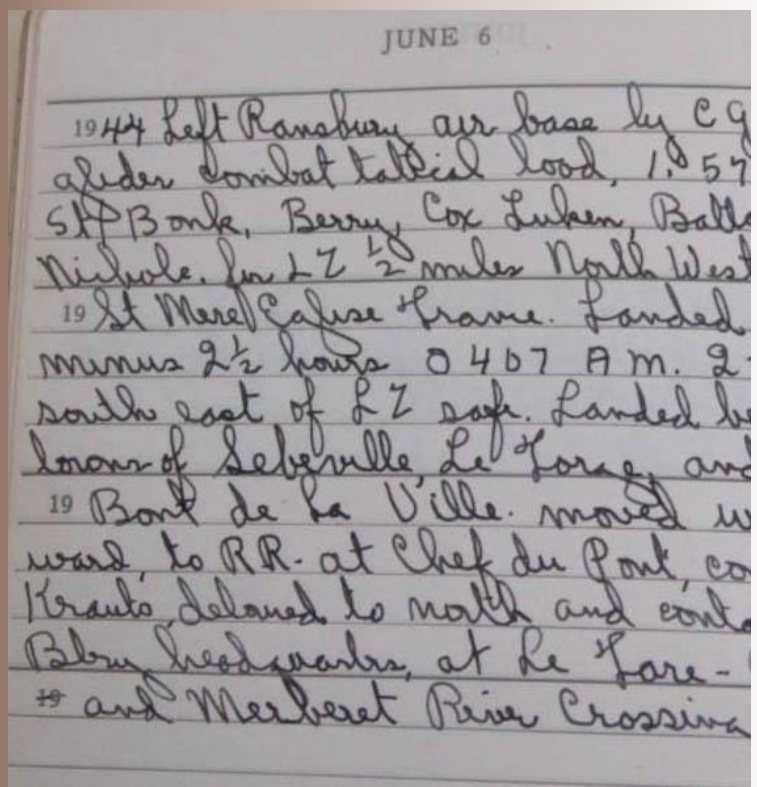 JUNE 6
1944 Left Ransbury air base by CG
glider combat tatical load, 1. 57
Bonk, Berry, Cox Luken, Balla
Nichole. for LZ ½ miles North West
19 St Mere Eglise France. Landed
minus 2½ hours 0407 AM. 2
south east of LZ safe. Landed be
towns of Sebeville Le Forge, and
19 Bont de La Ville. moved w
ward, to RR. at Chef du Pont, co
Krauts, deloued to north and conta
Btry headquarters, at Le Fare -
19 and Merberet River Crossing